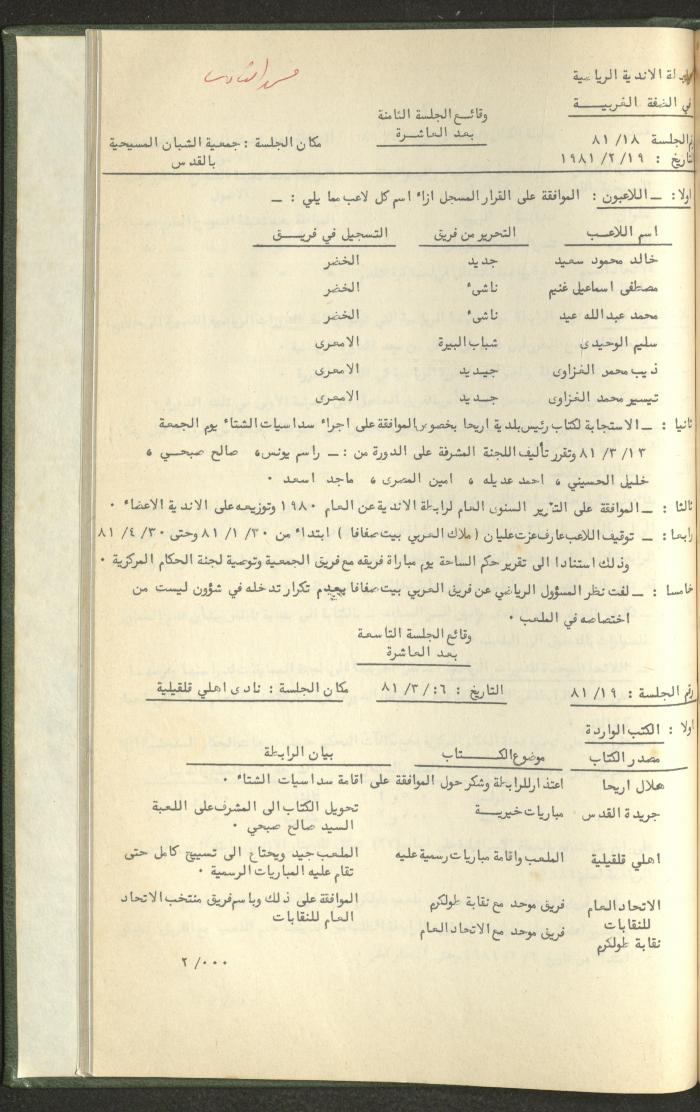 رابطة الاندية الرياضية
في الضفة الغربيـــة
وقائع الجلسة الثامنة
بعد العاشرة
رقم الجلسة ٨١/١٨
مكان الجلسة : جمعية الشبان المسيحية
بالقدس
تاريخ : ١٩٨١/٢/١٩
اولا : ــ اللاعبون : الموافقة على القرار المسجل ازاء اسم كل لاعب مما يلي : ــ
اسم اللاعـــب التحرير من فريق التسجيل في فريــــق
خالد محمود سعيد جديد الخضر
مصطفى اسماعيل غنيم ناشىء الخضر
محمد عبدالله عيد ناشىء الخضر
سليم الوحيدى شباب البيرة الامعرى
ذيب محمد الغزاوى جـيـديد الامعرى
تيسير محمد الغزاوى جــديد الامعرى
ثانيا : ــ الاستجابة لكتاب رئيس بلدية اريحا بخصوص الموافقة على اجراء سداسيات الشتاء يوم الجمعة
٨١/٣/١٣ وتقرر تأليف اللجنة المشرفة على الدورة من : ــ راسم يونس، صالح صبحــي ،
خليل الحسيني ، احمد عديله ، امين المصرى ، ماجد اسعد .
ثالثا : ــ الموافقة على التقرير السنوى العام لرابطة الاندية عن العام ١٩٨٠ وتوزيعه على الاندية الاعضاء .
رابعا : ــ توقيف اللاعب عارف عزت عليان ( ملاك العربي بيت صفافا ) ابتداء من ٨١/١/٣٠ وحتى ٨١/٤/٣٠
وذلك استنادا الى تقرير حكم الساحة يوم مباراة فريقه مع فريق الجمعية وتوصية لجنة الحكام المركزية .
خامسا : ــ لفت نظر المسؤول الرياضي عن فريق العربي بيت صفافا بعدم تكرار تدخله في شؤون ليست من
اختصاصه في الملعب .
وقائع الجلسة التاسعة
بعد العاشرة
رقم الجلسة : ٨١/١٩ التاريخ : ٨١/٣/٦ مكان الجلسة : نادى اهلي قلقيلية
اولا : الكتب الواردة
مصدر الكتاب موضوع الكــــتاب بيان الرابطة
هلال اريحا اعتذار للرابطة وشكر حول الموافقة على اقامة سداسيات الشتاء .
جريدة القدس مباريات خيريــة تحويل الكتاب الى المشرف على اللعبة
السيد صالح صبحي .
اهلي قلقيلية الملعب واقامة مباريات رسمية عليه الملعب جيد ويحتاج الى تسييج كامل حتى
تقام عليه المباريات الرسمية .
الاتحاد العام فريق موحد مع نقابة طولكرم الموافقة على ذلك وباسم فريق منتخب الاتحاد
للنقابات العام للنقابات
نقابة طولكرم فريق موحد مع الاتحاد العام
٢/٠٠٠